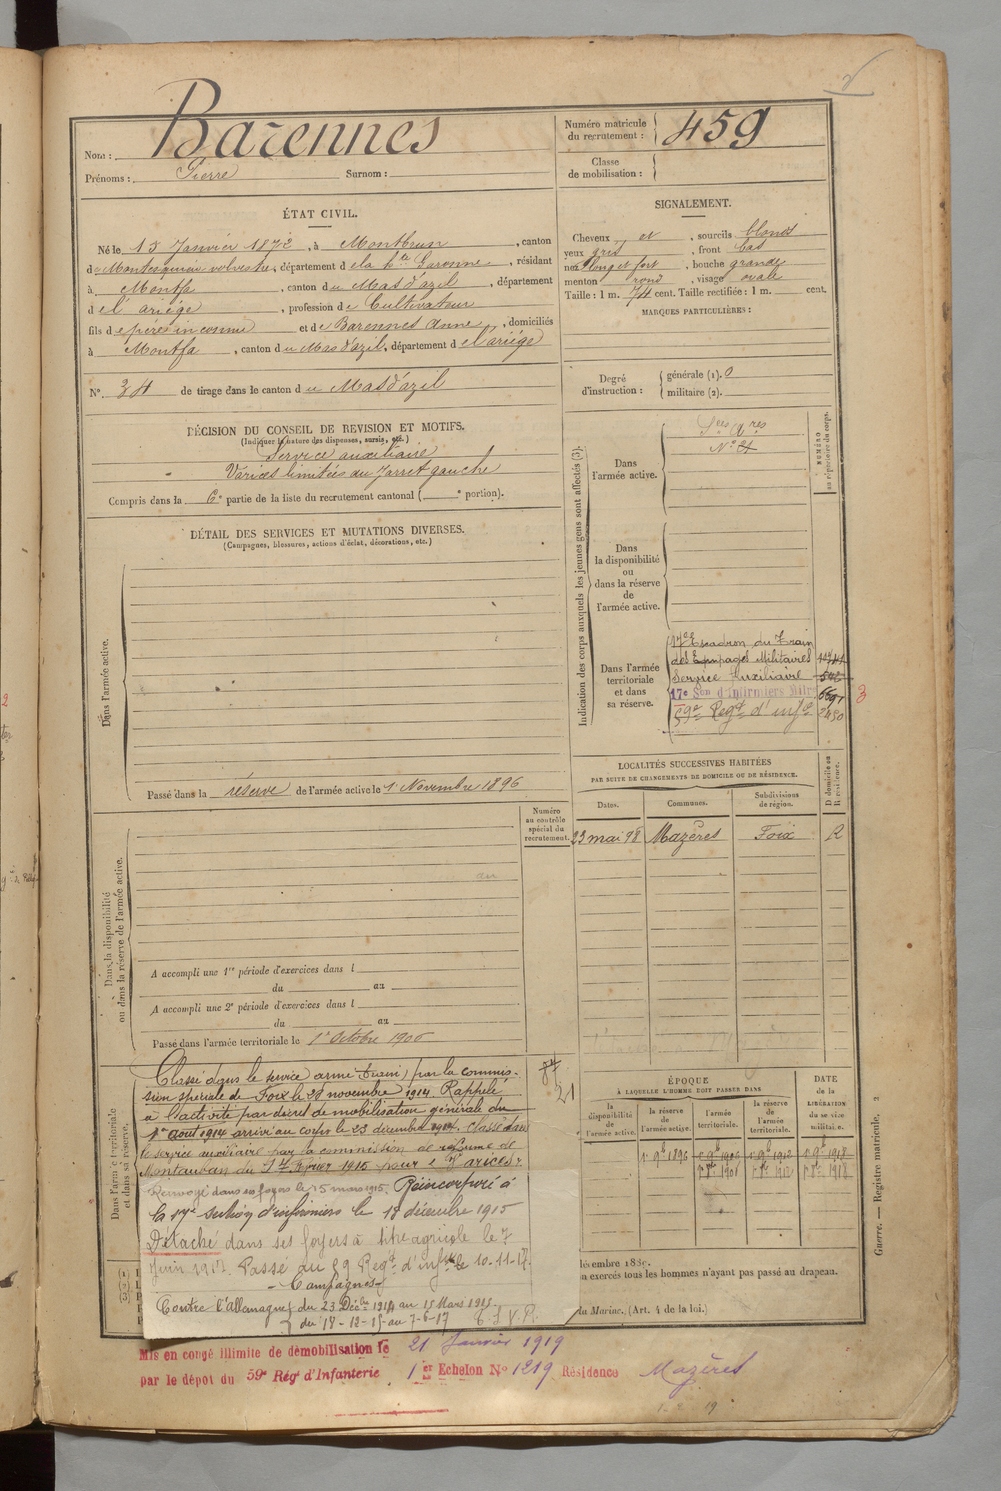 Nom : Barennes
Prénoms : Pierre Surnom :
Numéro matricule du recrutement : 459
Classe de mobilisation :
ÉTAT CIVIL.
Né le 15 Janvier 1872, à Montbrun, canton
de Montesquieu volvestre, département de la Hte Garonne, résidant
à Montfa, canton du Mas d'azil, département
de l'ariège, profession de Cultivateur
fils de père inconnu et de Barennes Anne, domiciliés
à Montfa, canton du Mas d'azil, département de l'ariège
N° 34 de tirage dans le canton du Mas d'azil
SIGNALEMENT.
Cheveux et, sourcils blonds
yeux gris, front bas
nez long et fort, bouche grande
menton rond, visage ovale
Taille : 1 m. 74 cent. Taille rectifiée : 1 m. cent.
MARQUES PARTICULIÈRES :
Degré d'instruction : générale (1). 0
militaire (2).
DÉCISION DU CONSEIL DE REVISION ET MOTIFS.
(Indiquer la nature des dispenses, sursis, etc.)
Service auxiliaire
Varices limitées au Jarret gauche
Compris dans la 6e partie de la liste du recrutement cantonal ( e portion).
DÉTAIL DES SERVICES ET MUTATIONS DIVERSES.
(Campagnes, blessures, actions d'éclat, décorations, etc.)
Dans l'armée active.
Passé dans la réserve de l'armée active le 1 Novembre 1896
Numéro au contrôle spécial du recrutement.
Dans la disponibilité ou dans la réserve de l'armée active.
A accompli une 1re période d'exercices dans l
du au
A accompli une 2e période d'exercices dans l
du au
Passé dans l'armée territoriale le 1er Octobre 1906
Dans l'armée territoriale et dans sa réserve.
Classé dans le service armé (train) par la commis-
sion spéciale de Foix le 28 novembre 1914 Rappelé
à l'activité par décret de mobilisation générale du
1er Aout 1914 arrivé au corps le 23 décembre 1914. Classé dans
le service auxiliaire par la commission de réforme de
Montauban du 1er février 1915 pour "Varices".
Renvoyé dans ses foyers le 15 mars 1915. Réincorporé à
la 17e section d'infirmiers le 18 décembre 1915
Détaché dans ses foyers à titre agricole le 7
Juin 1917. Passé au 59 Regt d'infie le 10-11-17.
Campagnes
Contre l'Allemagne du 23 Décbre 1914 au 15 Mars 1915
du 18-12-15 au 7-6-17
21
Mis en congé illimité de démobilisation le 21 Janvier 1919
par le dépôt du 59e Rég d'Infanterie 1er Echelon N° 1219 Résidence Mazères
Indication des corps auxquels les jeunes gens sont affectés (3).
NUMÉRO au répertoire du corps.
Dans l'armée active.
Dans la disponibilité ou dans la réserve de l'armée active.
Dans l'armée territoriale et dans sa réserve.
17e Escadron du Train
des Equipages Militaires
Service Auxiliaire
17e Son d'Infirmiers Mitres
59e Regt d'infie
3
LOCALITÉS SUCCESSIVES HABITÉES
PAR SUITE DE CHANGEMENTS DE DOMICILE OU DE RÉSIDENCE.
Dates. Communes. Subdivisions de région. D domicile ou R résidence.
23 mai 98 Mazères Foix R
ÉPOQUE
À LAQUELLE L'HOMME DOIT PASSER DANS
DATE de la LIBÉRATION du service militaire.
la disponibilité de l'armée active. la réserve de l'armée active. l'armée territoriale. la réserve de l'armée territoriale.
1 9b 1896 1 9b 1906 1 9b 1912 1 9b 1918
décembre 1889.
on exercés tous les hommes n'ayant pas passé au drapeau.
du Marine. (Art. 4 de la loi.)
Guerre. — Registre matricule. 2